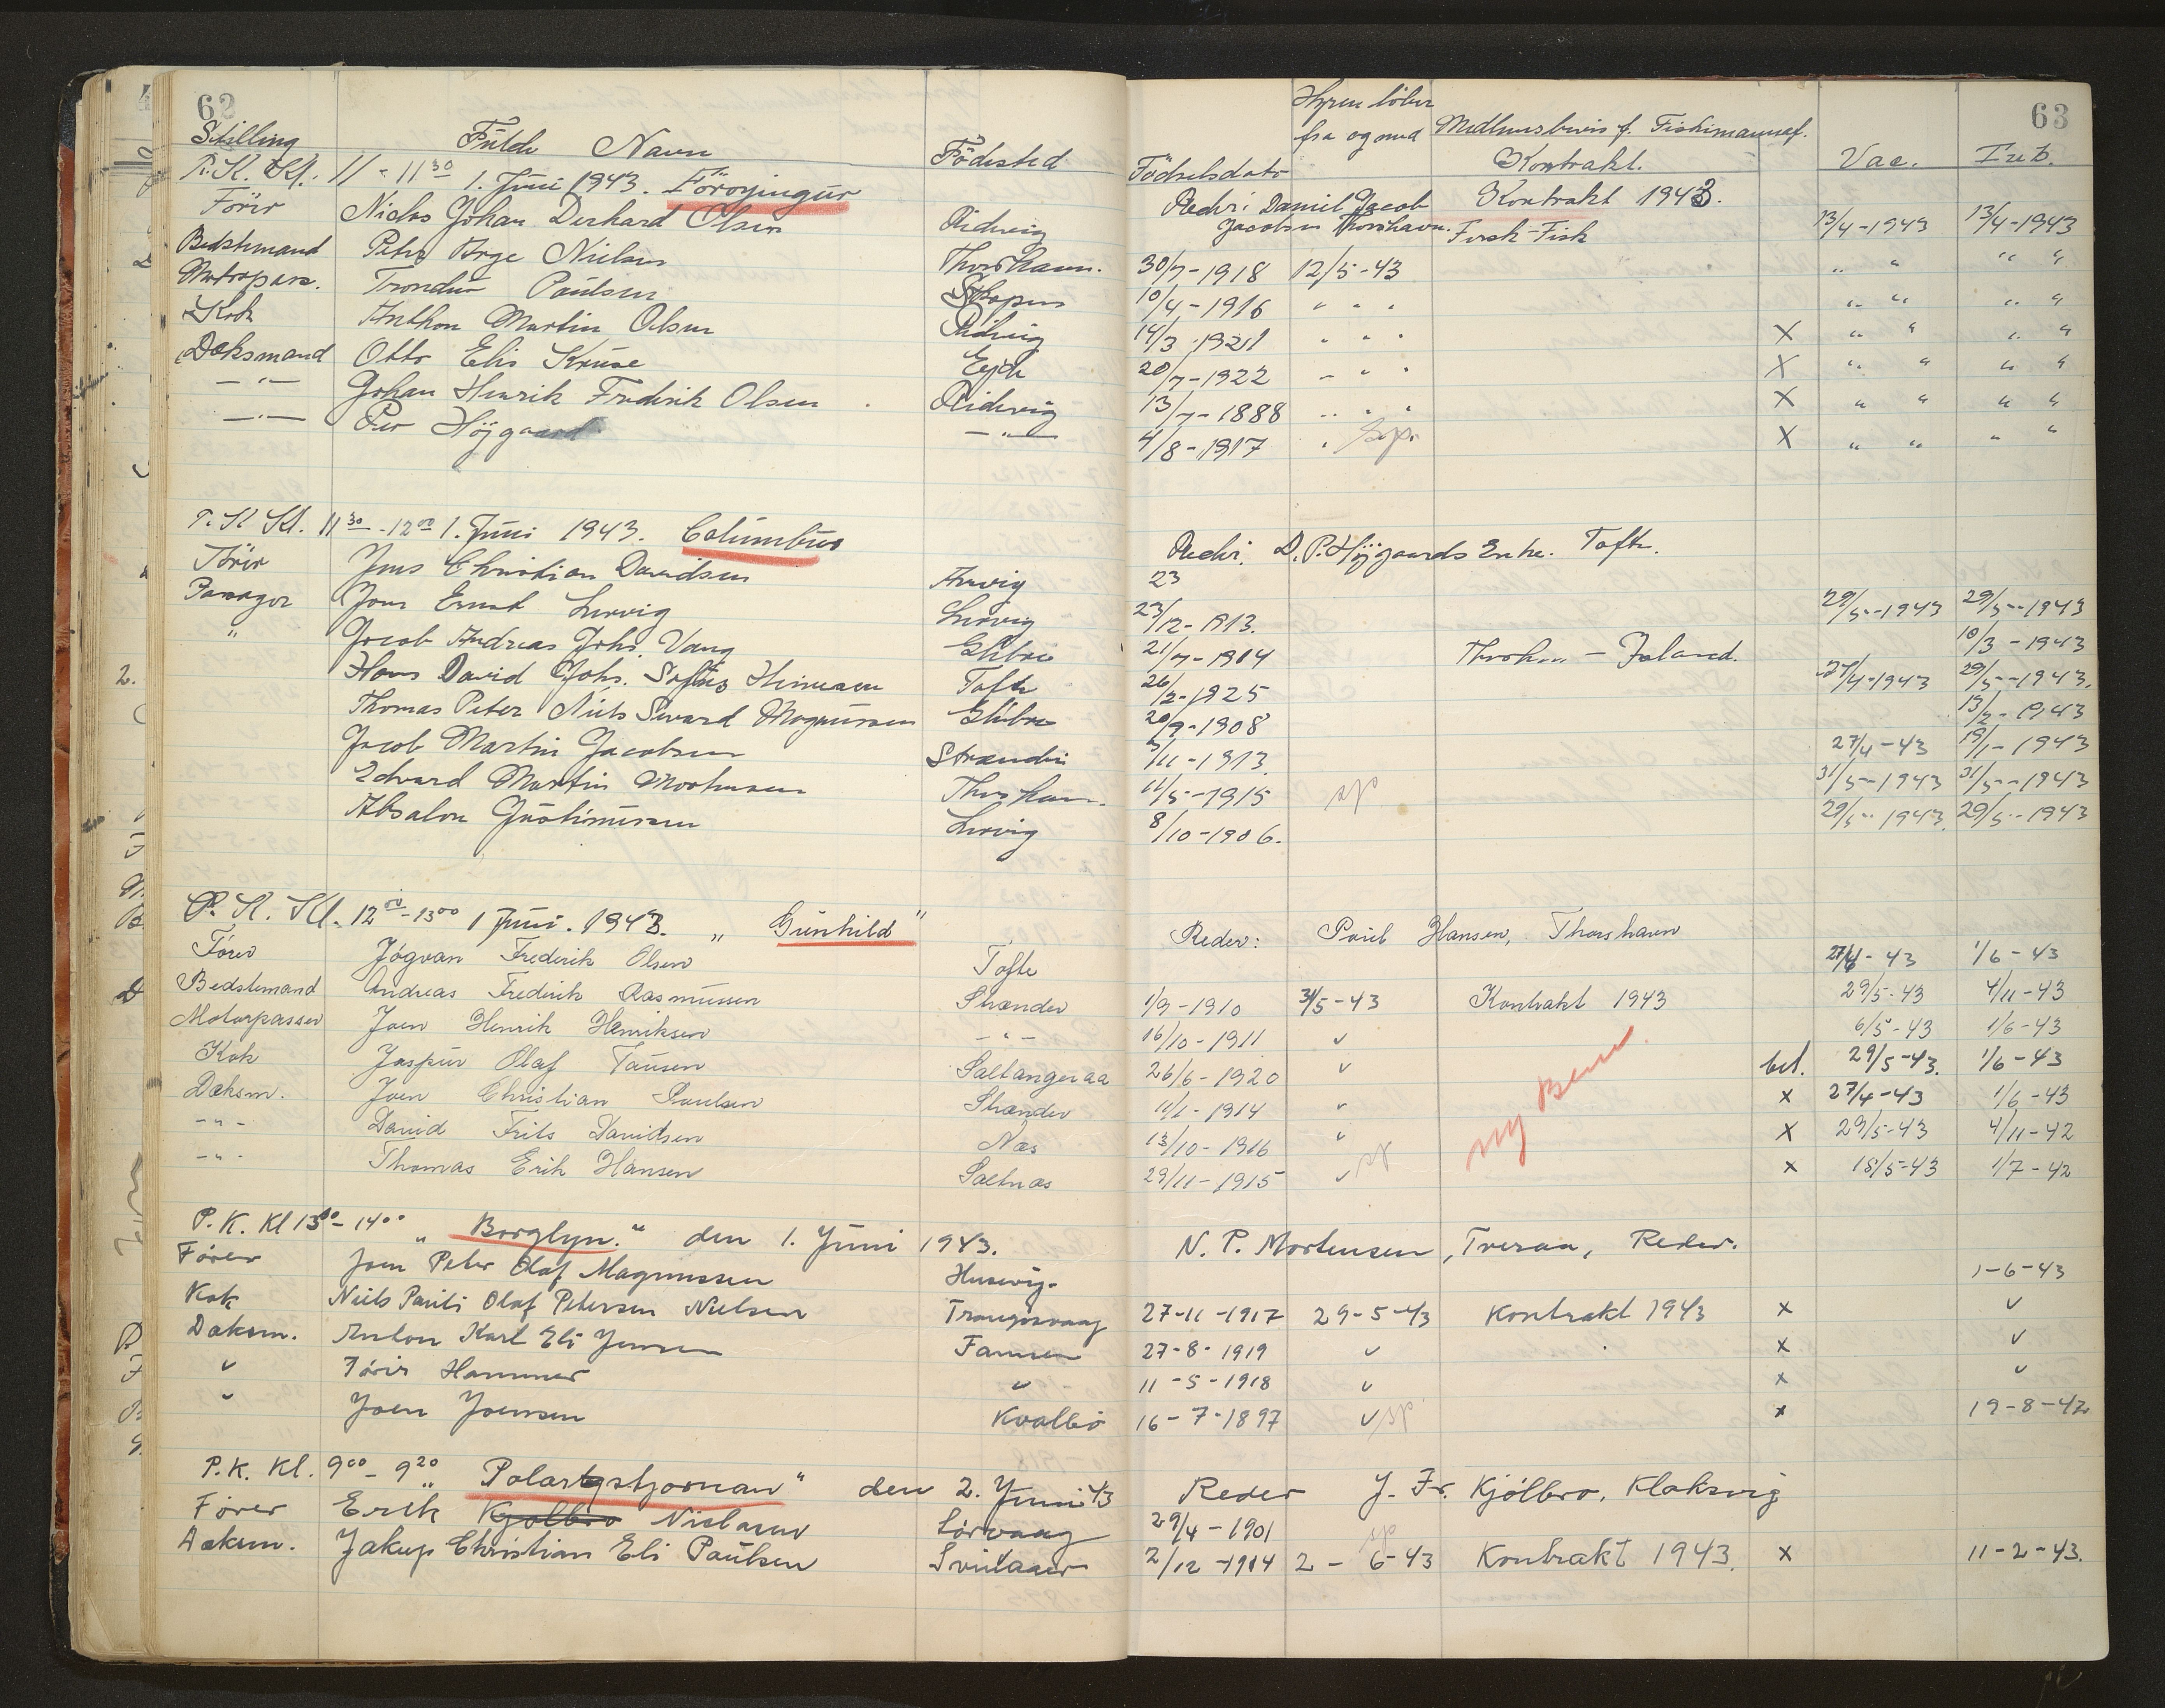 62
63
Stilling Fulde Navn Födested Födselsdato Hyren löber fra og med Medlemsbevis f. Fiskimannaf. Kontrakt. Vac. Tub.
P.K. Kl. 11 - 11 30 1. Juni 1943. Föroyingur Rederi Daniel Jacob Jacobsen Thorshavn. Kontrakt 1943. Fersk-Fisk
Förer Niclas Johan Derhard Olsen Ridevig 13/4-1943 13/4-1943
Bedstemand Peter Arge Nielsen Thorshavn. 30/7-1918 12/5-43 " " " "
Motorpass. Trondur Paulsen Skopun 10/4-1916 " " " " " " "
Kok Anthon Martin Olsen Ridevig 14/3-1921 " " " X " " " "
Daksmand Otto Elis Kruse Ejde 20/7-1922 " " " X " " " "
— " — Johan Henrik Fredrik Olsen Ridevig 13/7-1888 " " " X " " " "
— " — Per Höjgaard — " — 4/8-1917 " X " " " "
P.K. Kl. 11 30 - 12 00 1. Juni 1943. Columbus Rederi. D.P. Højgaards Enke. Tofte.
Förer Jens Christian Davidsen Arnvig 23
Passager Jens Ernst Lervig Lervig 23/12-1913. 29/5-1943 29/5-1943
" Jacob Andreas Johs. Vang Glibre 21/7-1904 Thorsh... - Island. 10/3-1943
Hans David Johs. Sofus Heinesen Tofte 26/2-1925 27/4-1943 29/5-1943.
Thomas Peter Niels Sivard Magnussen Glibre 20/9-1908 13/2-1943
Jacob Martin Jacobsen Strender 5/11-1913. 27/4-43 19/1-1943
Edvard Martin Mortensen Thorshavn. 11/5-1915 sp 31/5-1943 31/5-1943
Absalon Justinussen Lervig 8/10-1906. 29/5-1943. 29/5-1943
P.K. Kl. 12 00 - 13 00 1 Juni. 1943. " Gunhild " Reder: Poul Hansen, Thorshavn
Förer Jógvan Frederik Olsen Tofte 27/4-43 1/6-43
Bedstemand Andreas Fredrik Rasmussen Strender 1/9-1910 31/5-43 Kontrakt 1943 29/5-43 4/11-43
Motorpasser Joen Henrik Henriksen - " - 16/10-1911 " 6/5-43 1/6-43
Kok Jaspur Olaf Tausen Saltangeraa 26/6-1920 " bet. 29/5-43. 1/6-43
Daksm. Joen Christian Poulsen Strender 11/1-1914 " X 27/4-43 1/6-43
- " - David Frits Davidsen Næs 13/10-1916 " X 29/5-43 4/11-42
- " - Thomas Erik Hansen Saltnæs 29/11-1915 " sp X 18/5-43 1/7-42
P.K. Kl 13 00 - 14 00 " Borglyn. " den 1. Juni 1943. N. P. Mortensen, Tveraa, Reder.
Fører Joen Peter Olaf Magnussen Husevig. 1-6-43
Kok Niels Pauli Olaf Petersen Nielsen Trangisvaag 27-11-1917 29-5-43 Kontrakt 1943 X "
Daksm. Anton Karl Eli Jensen Famien 27-8-1919 " X "
" Tórir Hammer " 11-5-1918 " X "
" Joen Joensen Kvalbö 16-7-1897 " sp. X 19-8-42
P.K. Kl. 9 00 - 9 20 " Polarstjornan " den 2. Juni 43 Reder J. Fr. Kjølbro, Klaksvig
Fører Erik Kjølbro Niclasen Sørvaag 29/4-1901
Daksm. Jakup Christian Eli Paulsen Svinaaer 2/12-1914 2-6-43 Kontrakt 1943. X 11-2-43.